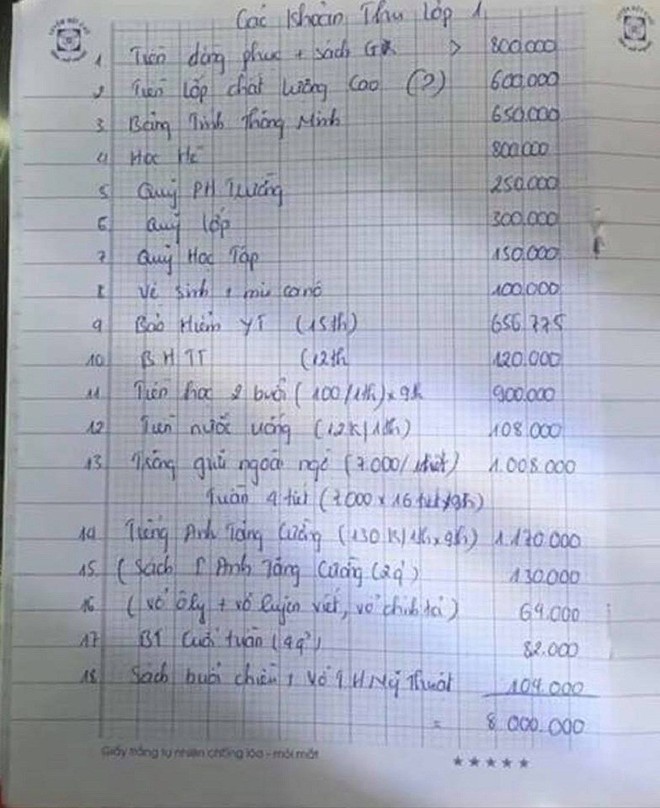 Các khoản Thu lớp 1
1 Tiền đồng phục + sách GK > 800.000
2 Tiền lớp chất lượng cao (?) 600.000
3 Bảng Tính Thông Minh 650.000
4 Học Hè 800.000
5 Quỹ PH Trường 250.000
6 Quỹ lớp 300.000
7 Quỹ Học Tập 150.000
8 Vệ sinh, mũ ca nô 100.000
9 Bảo Hiểm YT (15th) 656.775
10 BHTT (12th 120.000
11 Tiền học 2 buổi (100/1th) x 9th 900.000
12 Tiền nước uống (12K/1th) 108.000
13 Trông giữ ngoài giờ (7.000/tiết) 1.008.000
Tuần 4 tiết (7.000 x 16 tiết/9th)
14 Tiếng Anh Tăng Cường (130K/1th x 9th) 1.170.000
15 (Sách T Anh Tăng Cường (2q) 130.000
16 (Vở ôly + vở luyện viết, vở chính tả) 64.000
17 BT Cuối tuần (4q) 82.000
18 Sách buổi chiều, vở TH Mỹ Thuật 104.000
= 8.000.000
Giấy trắng tự nhiên chống lóa - mỏi mắt